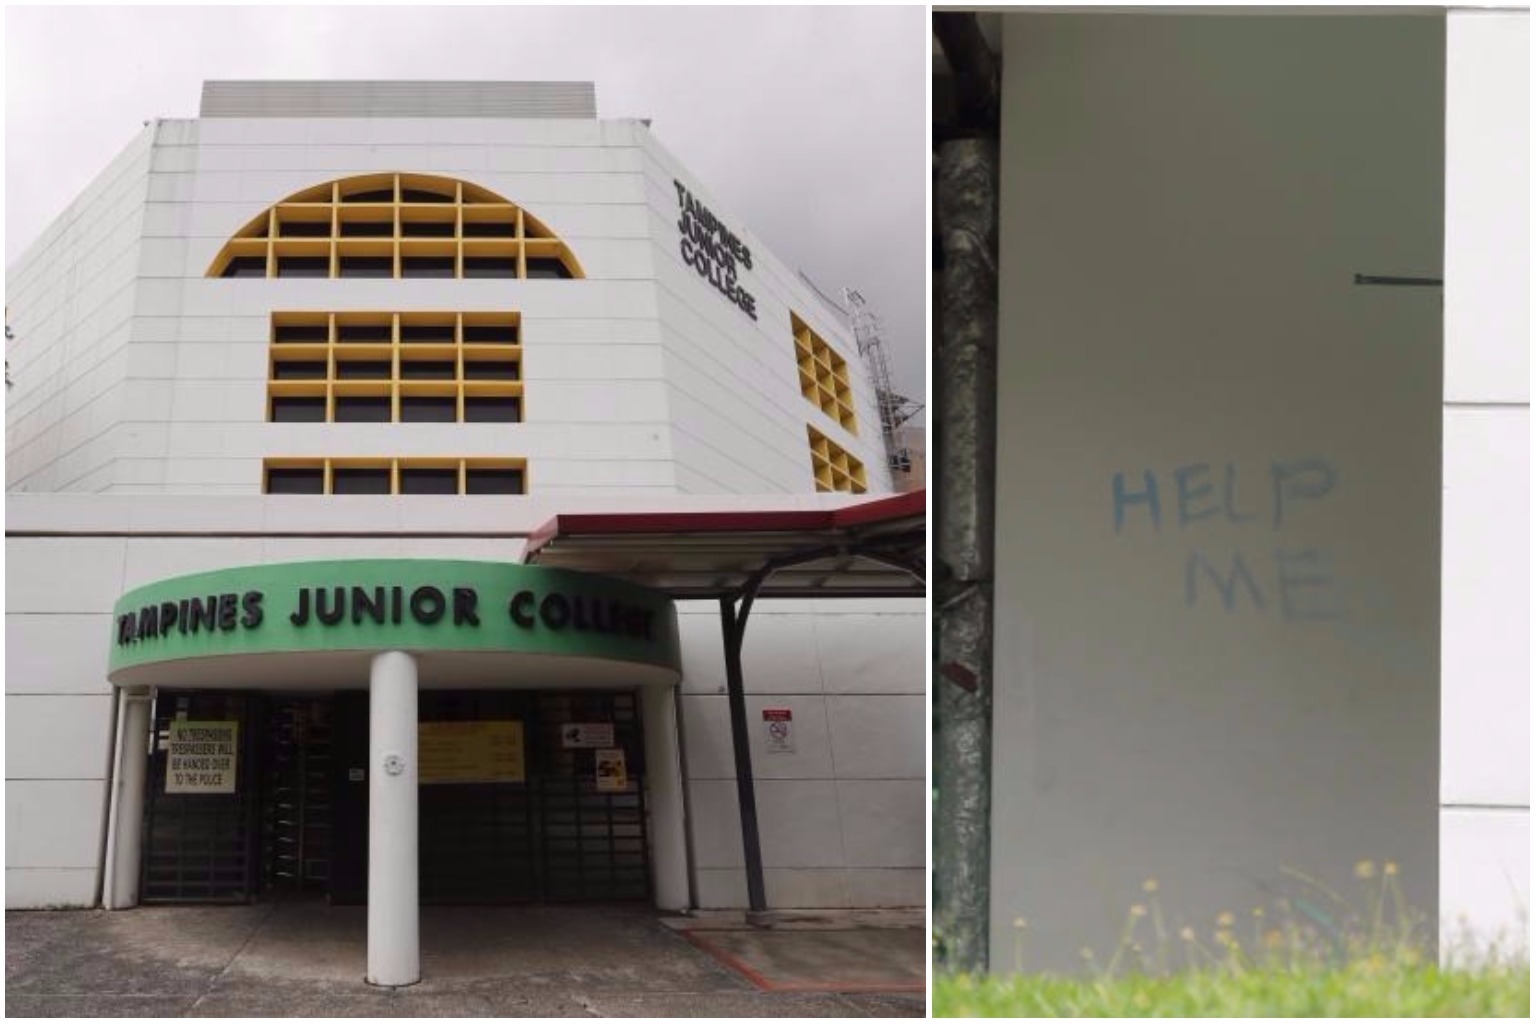 TAMPINES
JUNIOR
COLLEGE
TAMPINES JUNIOR COLLEGE
NO TRESPASSING
TRESPASSERS WILL
BE HANDED OVER
TO THE POLICE
HELP
ME